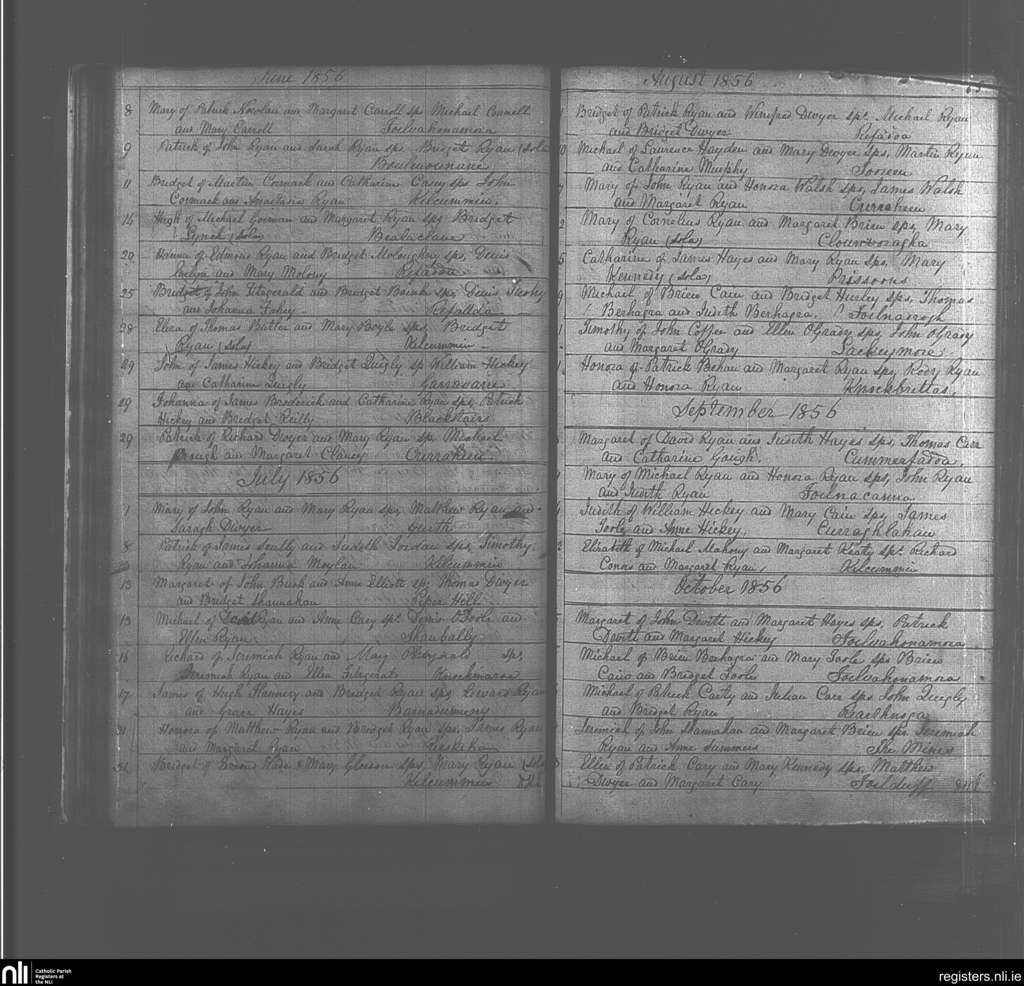 June 1856
8 Mary of Patrick Nowlan and Margaret Carroll sps Michael Connell
and Mary Carroll Foilvahonamora
9 Patrick of John Ryan and Sarah Ryan sps Bridget Ryan (sola)
11 Bridget of Martin Cormack and Catharine Casey sps John
Cormack and Anastasia Ryan Kilcummin
14 Hugh of Michael Gorman and Margaret Ryan sps Bridget
Lynch (sola) Bealaclave
20 of Edmond Ryan and Bridget McLoughny sps, Denis
and Mary Molony Refadda
25 Bridget of John Fitzgerald and Bridget sps, Denis
and Johanna Fahey Refadda
28 Eliza of Thomas Butler and Mary Boyle sps, Bridget
Ryan (sola) Kilcummin
29 John of James Hickey and Bridget Quigly sp William Hickey
and Catharine Quigly Garrovane
29 Johanna of James Broderick and Catharine Ryan sps, Patrick
Hickey and Bridget Reilly Blackstairs
29 Patrick of Richard Dwyer and Mary Ryan sps Michael
and Margaret Clancy Curraheen
July 1856
1 Mary of John Ryan and Mary Ryan sps, Matthew Ryan and
Saragh Dwyer
8 Patrick of James Scully and Judith Jordan sps, Timothy
Ryan and Johanna Moylan Kilcummin
13 Margaret of John Bush and Anne Elliott sps Thomas Dwyer
and Bridget Shannahan Piper Hill
13 Michael of Ryan and Anne Cary sps Denis O'Toole and
Ellen Ryan Shanbally
16 Richard of Jeremiah Ryan and Mary sps,
Jeremiah Ryan and Ellen Fitzgerald Knockmaroe
17 James of Hugh Flannery and Bridget Ryan sps, Edward Ryan
and Grace Hayes
21 Honora of Matthew Ryan and Bridget Ryan sps, James Ryan
and Margaret Ryan
Bridget of Brien Wade & Mary Gleeson sps, Mary Ryan (sola)
Kilcummin
August 1856
Bridget of Patrick Ryan and Winefred Dwyer sps. Michael Ryan
and Bridget Dwyer Refadda
Michael of Laurence Hayden and Mary Dwyer sps, Martin Ryan
and Catharine Murphy Tooreen
Mary of John Ryan and Honora Walsh sps, James Walsh
and Margaret Ryan Curraheen
Mary of Cornelius Ryan and Margaret Brien sps, Mary
Ryan (sola)
Catharine of James Hayes and Mary Ryan sps, Mary
Kennedy (sola) Prissoons
Michael of Brien Cain and Bridget Hurley sps, Thomas
Berhagra and Judith Berhagra.
Timothy of John Coffer and Ellen OGrady sps, John OGrady
and Margaret OGrady Lackeymore
Honora of Patrick Behan and Margaret Ryan sps, Rody Ryan
and Honora Ryan Knockbrittas.
September 1856
Margaret of David Ryan and Judith Hayes sps, Thomas Carr
and Catharine Gough. Cummerfadda.
Mary of Michael Ryan and Honora Ryan sps, John Ryan
and Judith Ryan Foilnacanna
Judith of William Hickey and Mary Cain sps, James
Toole and Anne Hickey. Curraghlahan
Elizabeth of Michael Mahony and Margaret Keaty sps. Richard
Connrs and Margaret Ryan, Kilcummin
October 1856
Margaret of John Devitt and Margaret Hayes sps, Patrick
Devitt and Margaret Hickey Foilvahonamora
Michael of Brien Berhagra and Mary Toole sps Brien
Cain and Bridget Toole Foilvahonamora
Michael of Patrick Carty and Julian Carr sps John Quigly
and Bridget Ryan
Jeremiah of John Shannahan and Margaret Brien sps Jeremiah
Ryan and Anne Summers The Mines
Ellen of Patrick Cary and Mary Kennedy sps, Matthew
Dwyer and Margaret Cary Foilduff
nli Catholic Parish
Registers at
the NLI
registers.nli.ie